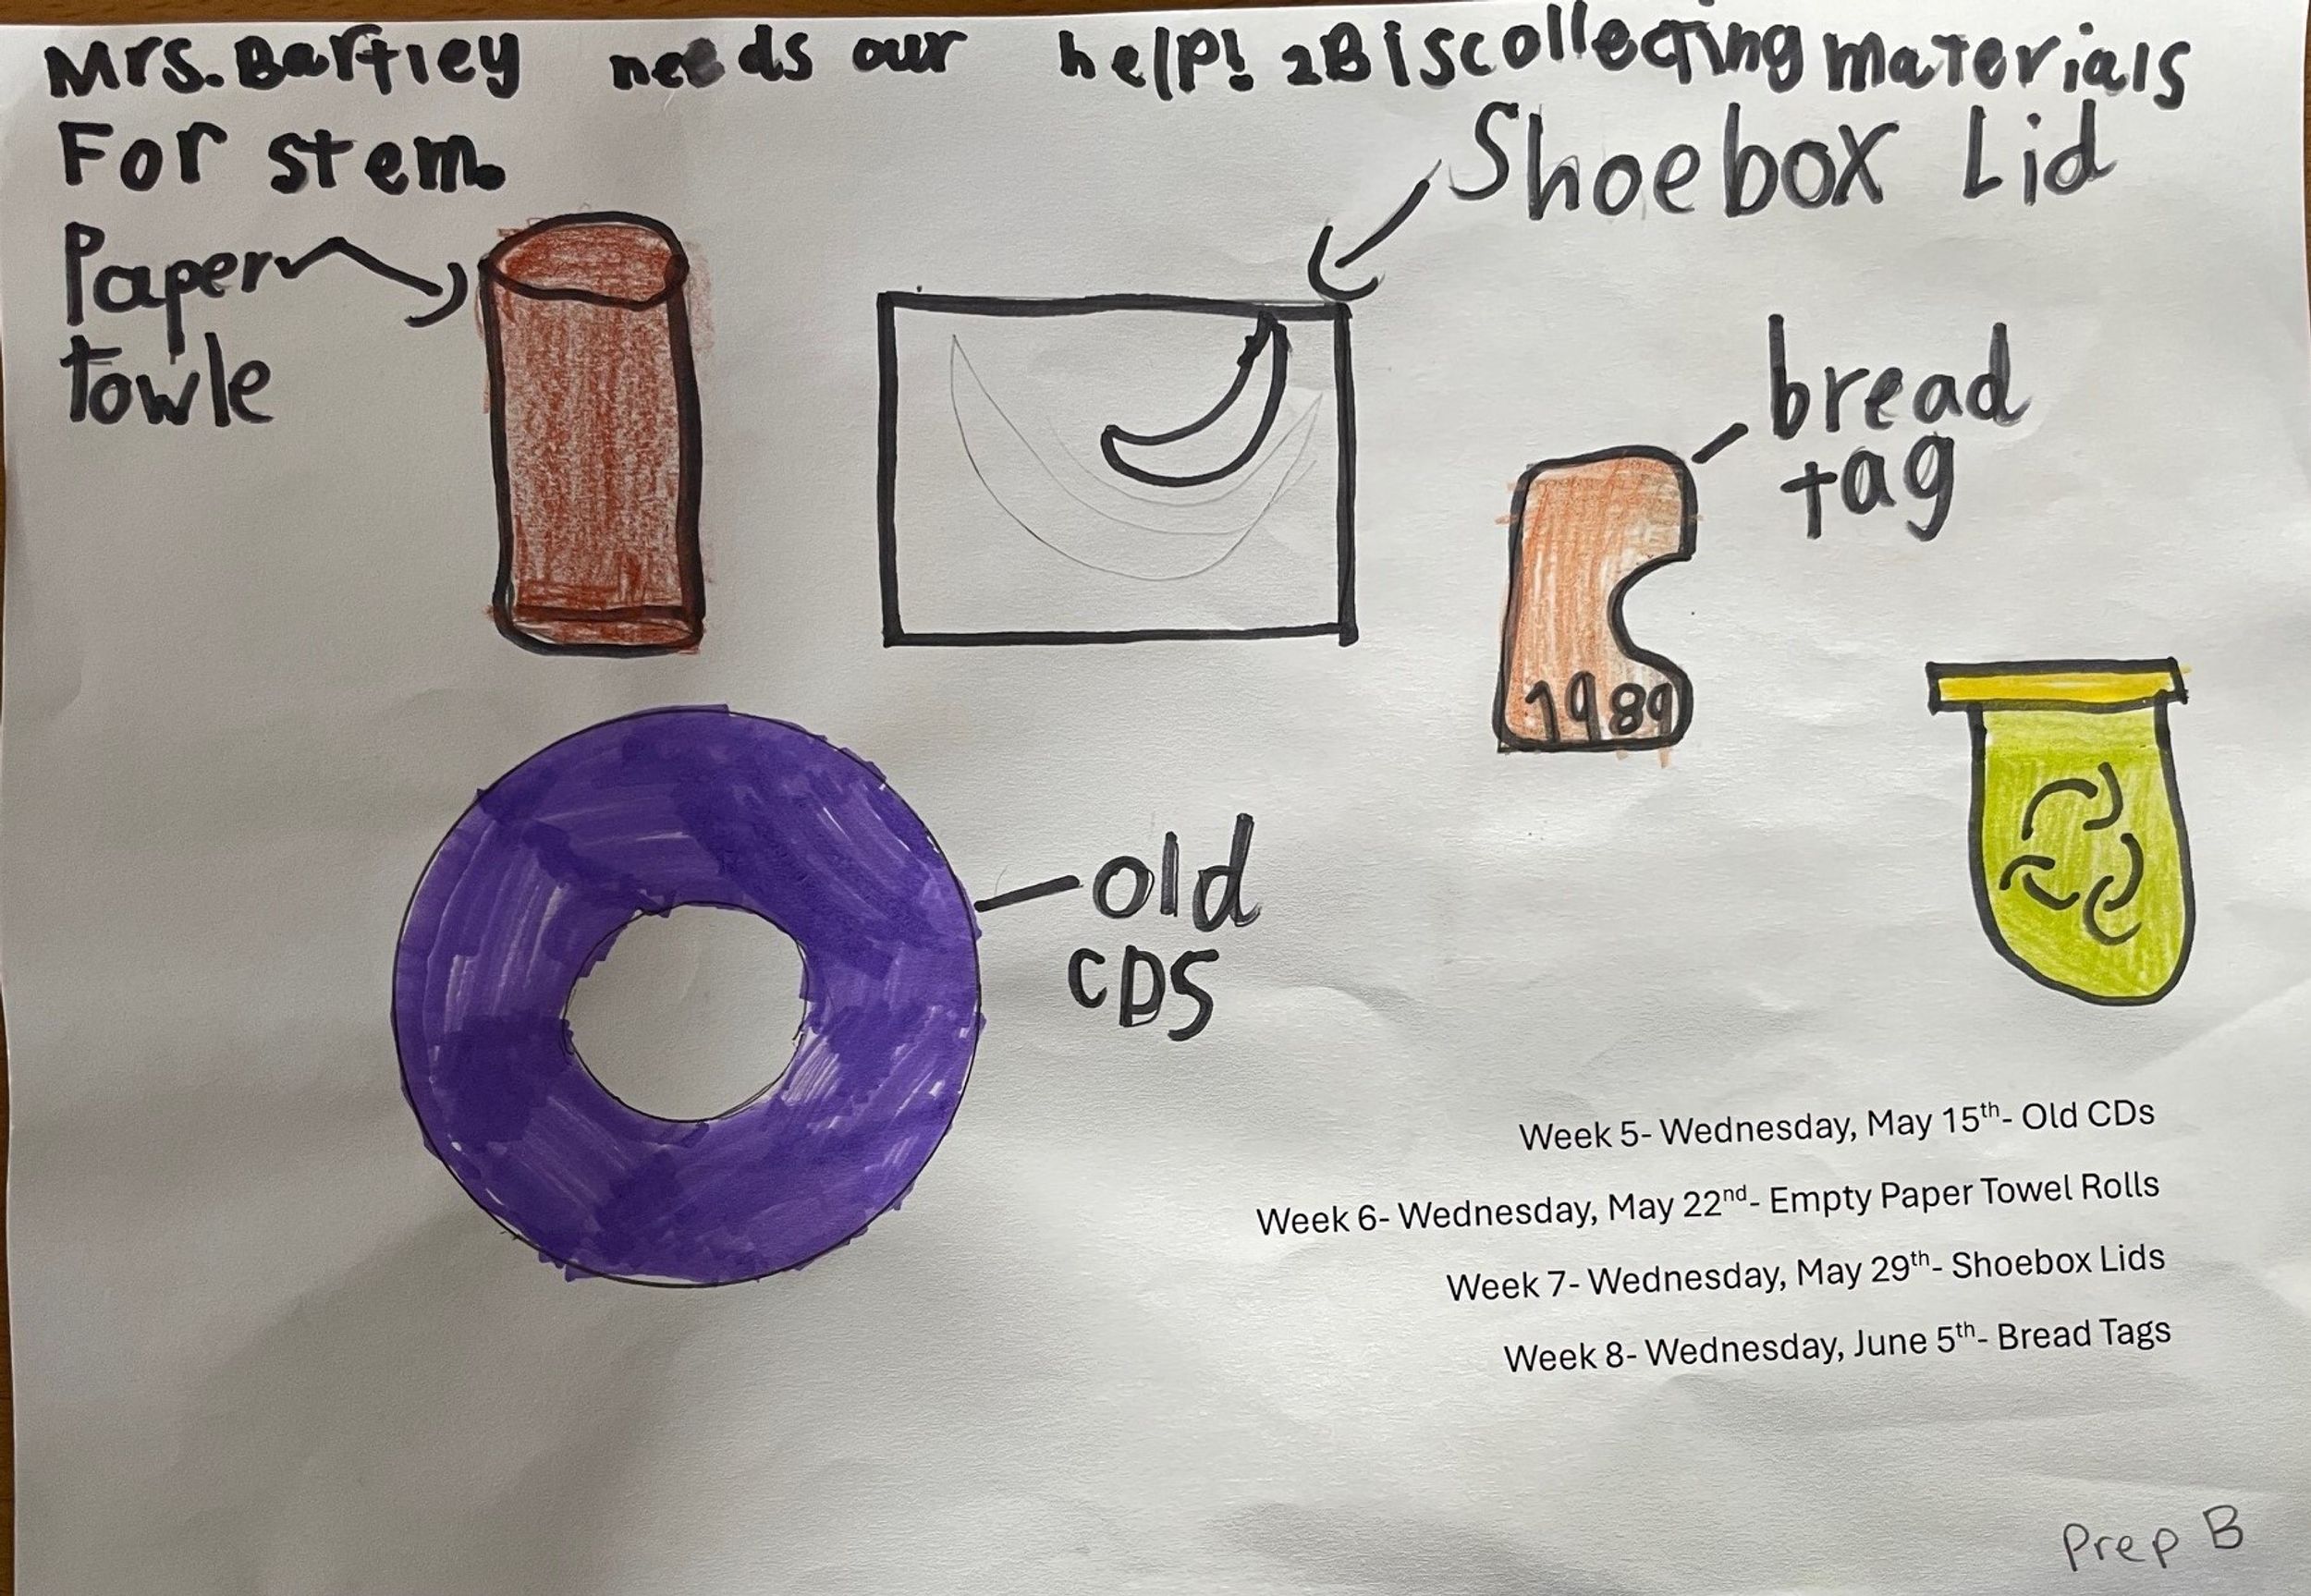 Mrs. Bartley needs our help! 2B is collecting materials
For stem.
Shoebox Lid
Paper
towle
bread
tag
1989
old
CDS
Week 5- Wednesday, May 15th- Old CDs
Week 6- Wednesday, May 22nd- Empty Paper Towel Rolls
Week 7- Wednesday, May 29th- Shoebox Lids
Week 8- Wednesday, June 5th- Bread Tags
Prep B